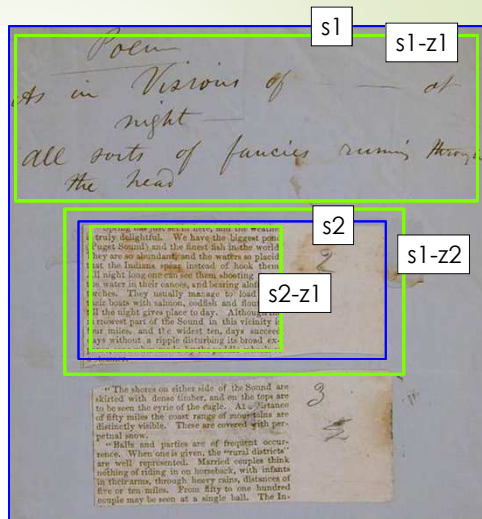 s1
s1-z1
Poem
As in Visions of — — at
night —
All sorts of fancies running through
the head
s2
s1-z2
Spring has just set in here, and the weather
is truly delightful. We have the biggest pond
(Puget Sound) and the finest fish in the world.
They are so abundant, and the waters so placid
that the Indians spear instead of hook them.
All night long one can see them shooting
the water in their canoes, and bearing aloft
torches. They usually manage to load
their boats with salmon, codfish and
till the night gives place to day. Although
narrowest part of the Sound in this vicinity is
four miles, and the widest ten, days succeed
days without a ripple disturbing its broad ex-
2
s2-z1
"The shores on either side of the Sound are
skirted with dense timber, and on the tops are
to be seen the eyrie of the eagle. At a distance
of fifty miles the coast range of mountains are
distinctly visible. These are covered with per-
petual snow.
"Balls and parties are of frequent occur-
rence. When one is given, the "rural districts"
are well represented. Married couples think
nothing of riding in on horseback, with infants
in their arms, through heavy rains, distances of
five or ten miles. From fifty to one hundred
couple may be seen at a single ball. The In-
3